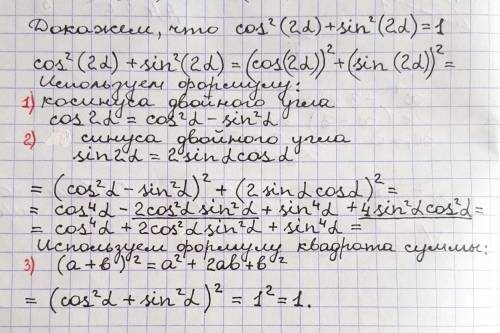 Докажем, что cos²(2α)+sin²(2α)=1
cos²(2α)+sin²(2α)=(cos(2α))²+(sin(2α))²=
Используем формулу:
1) косинуса двойного угла
cos2α=cos²α-sin²α
2) синуса двойного угла
sin2α=2sinαcosα
=(cos²α-sin²α)²+(2sinαcosα)²=
=cos⁴α-2cos²αsin²α+sin⁴α+4sin²αcos²α=
=cos⁴α+2cos²αsin²α+sin⁴α=
Используем формулу квадрата суммы:
3) (a+b)²=a²+2ab+b²
=(cos²α+sin²α)²=1²=1.